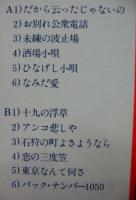 A1)だから云ったじゃないの
2)お別れ公衆電話
3)未練の波止場
4)酒場小唄
5)ひなげし小唄
6)なみだ愛
B1)十九の浮草
2)アンコ悲しや
3)石狩の町よさようなら
4)恋の三度笠
5)東京なんて何さ
6)バック・ナンバー1050